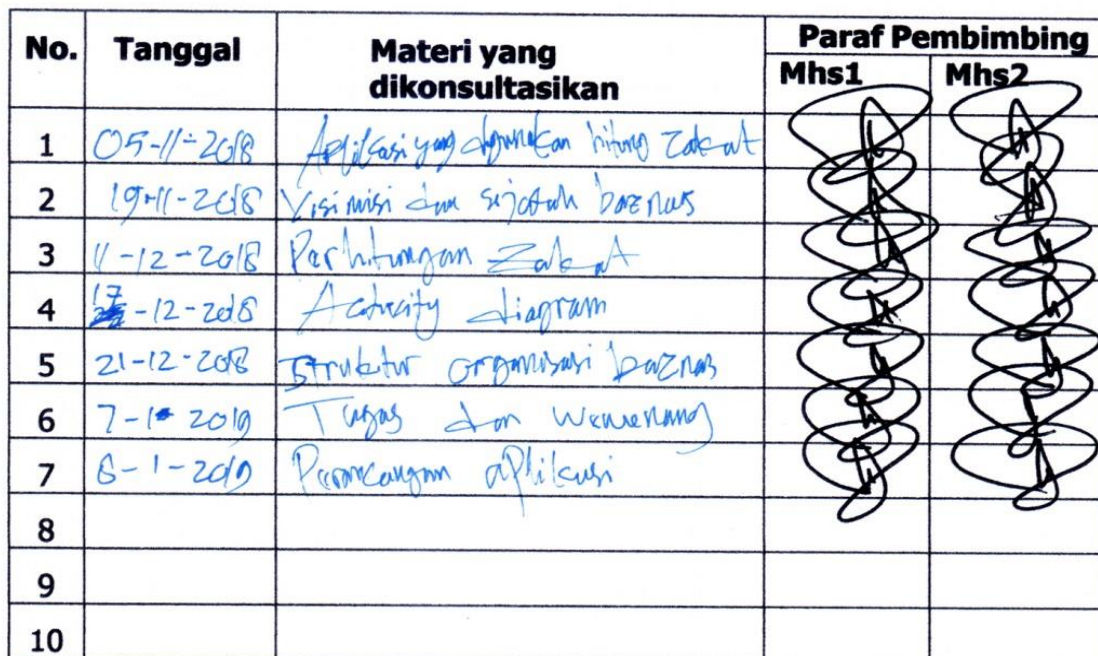 No. Tanggal Materi yang dikonsultasikan Paraf Pembimbing
Mhs1 Mhs2
1 05-11-2018 Aplikasi yang digunakan hitung Zakat
2 19-11-2018 Visi misi dan sejarah baznas
3 11-12-2018 Perhitungan Zakat
4 17-12-2018 Activity diagram
5 21-12-2018 Struktur organisasi baznas
6 7-1-2019 Tugas dan Wewenang
7 8-1-2019 Perancangan aplikasi
8
9
10